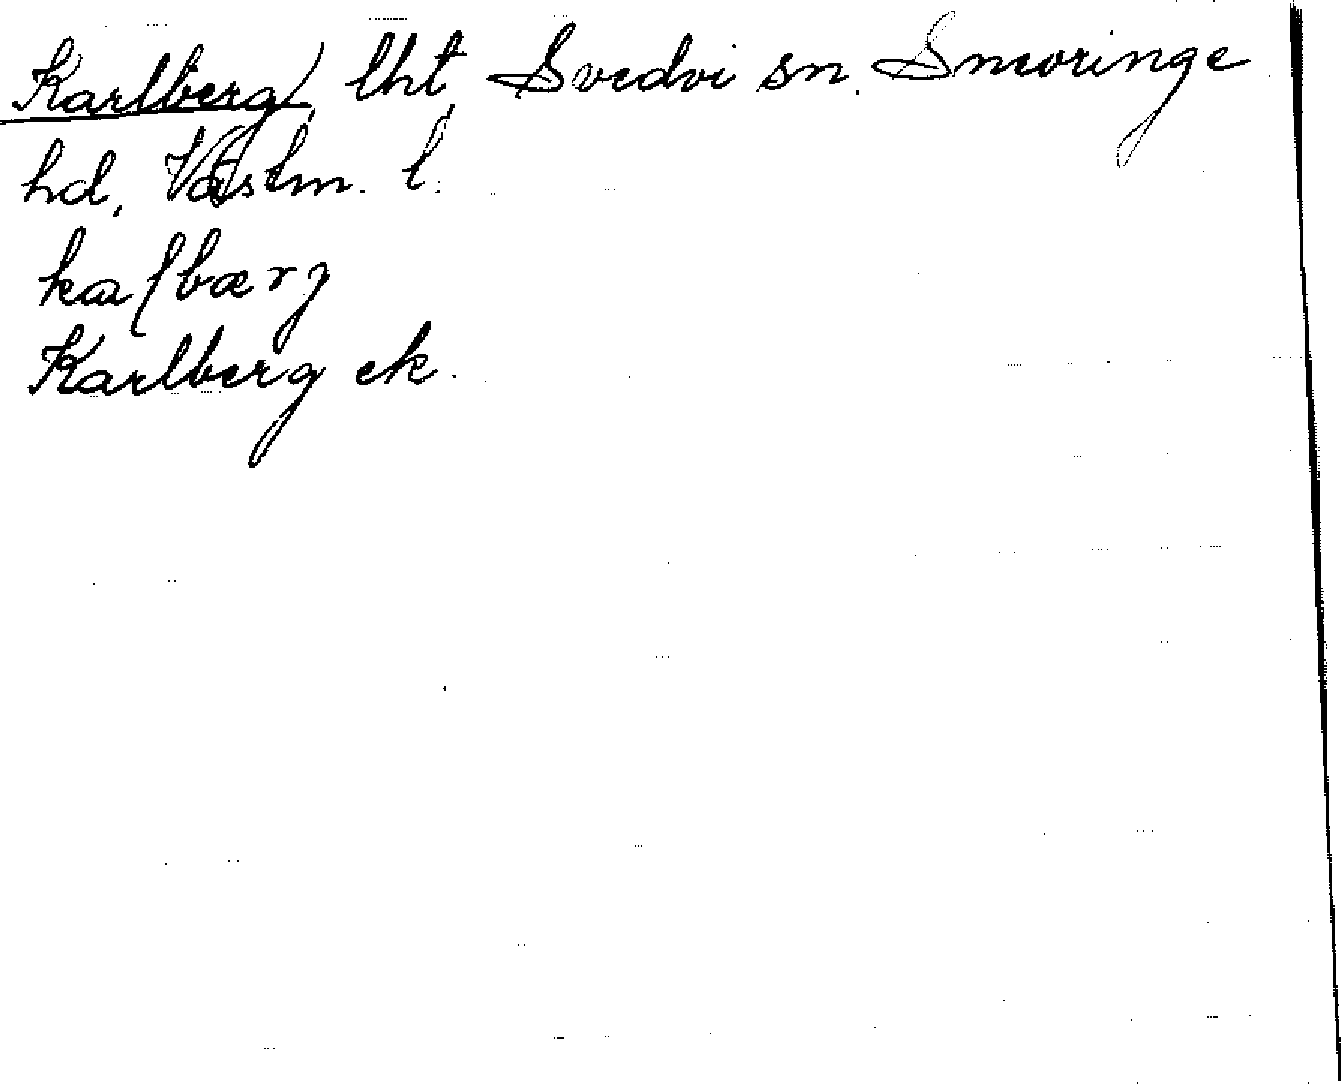 Karlberg, lht, Svedvi sn. Snevringe
hd, Västm. l.
kaſbærg
Karlberg ek.